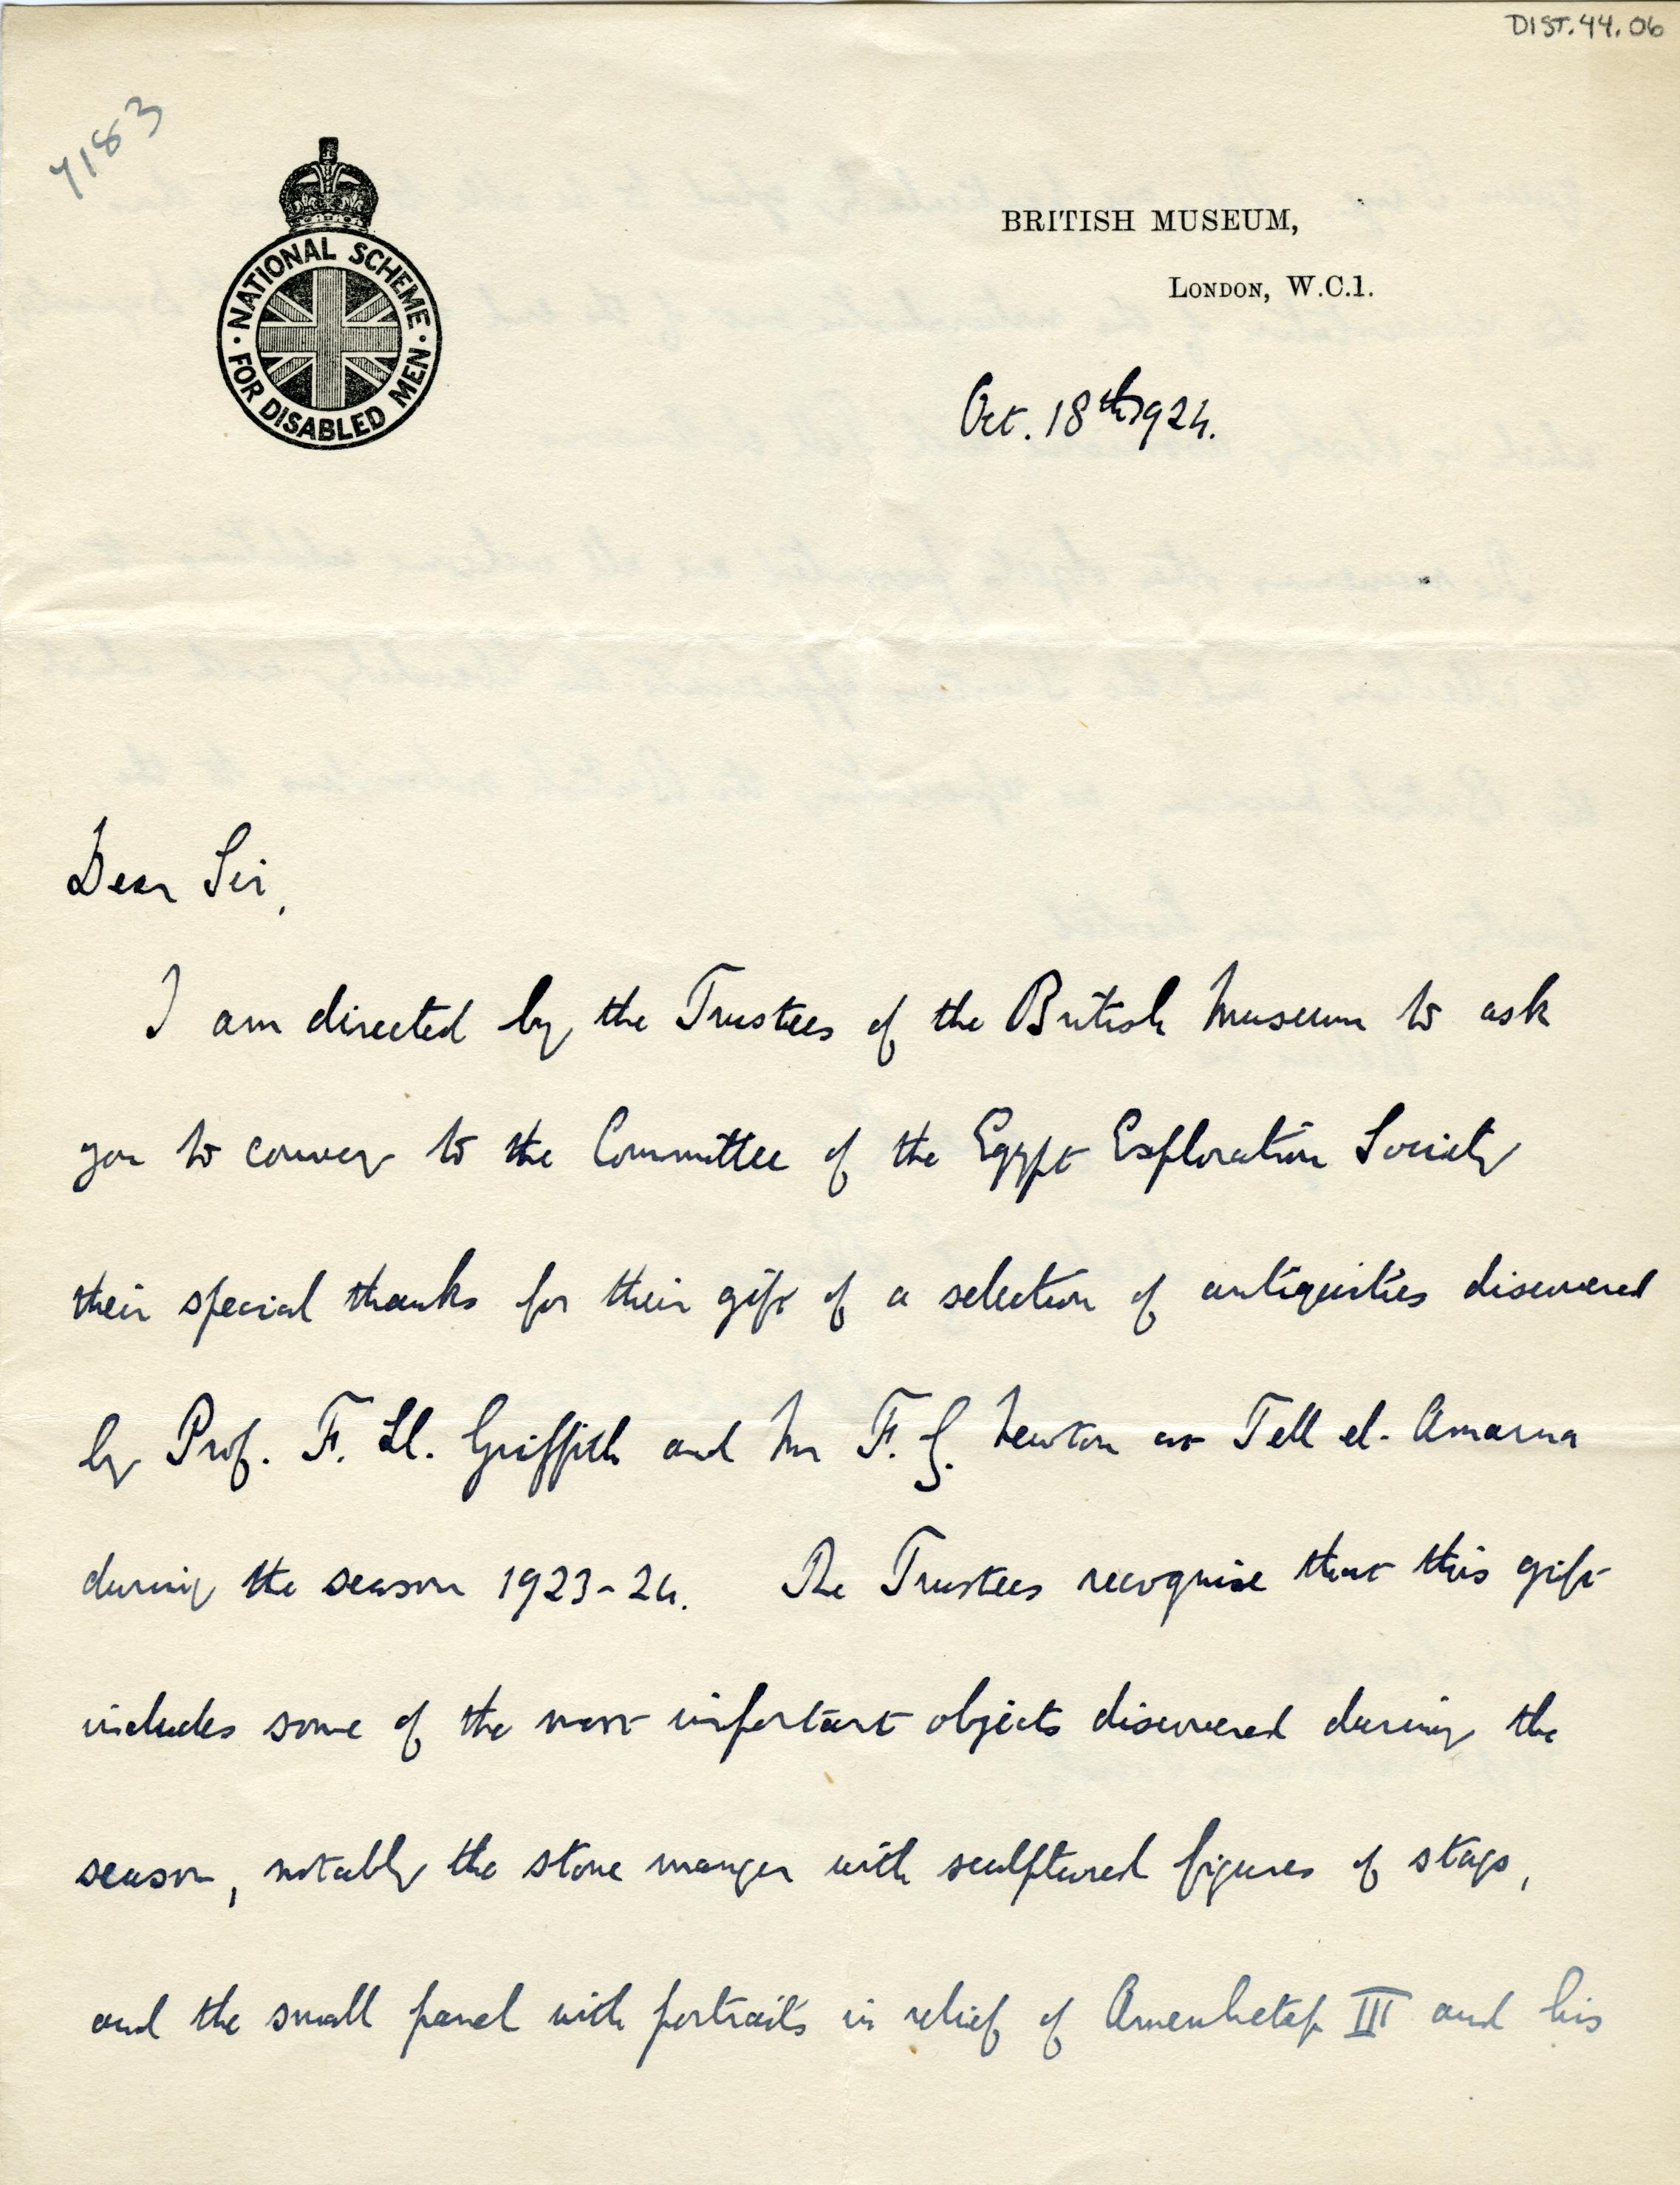 DIST.44.06
7183
NATIONAL SCHEME
· FOR DISABLED MEN ·
BRITISH MUSEUM,
LONDON, W.C.1.
Oct. 18th 1924.
Dear Sir,
I am directed by the Trustees of the British Museum to ask
you to convey to the Committee of the Egypt Exploration Society
their special thanks for their gift of a selection of antiquities discovered
by Prof. F. Ll. Griffith and Mr F. G. Newton at Tell el-Amarna
during the season 1923-24. The Trustees recognise that this gift
includes some of the most important objects discovered during the
season, notably the stone manger with sculptured figures of stags,
and the small panel with portraits in relief of Amenhetep III and his